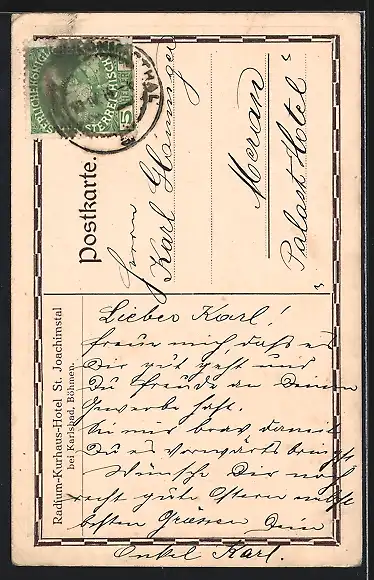 Postkarte.
Herrn
Karl
Meran
"Palast Hotel"
Radium-Kurhaus-Hotel St. Joachimstal
bei Karlsbad, Böhmen.
Lieber Karl!
freue mich, daß es
Dir gut geht und
Du Freude an Deinem
Gewerbe hast.
Sei nur brav damit
Du es vorwärts bringst
Wünsche Dir noch
recht gute Ostern nebst
besten Grüssen Dein
Onkel Karl.